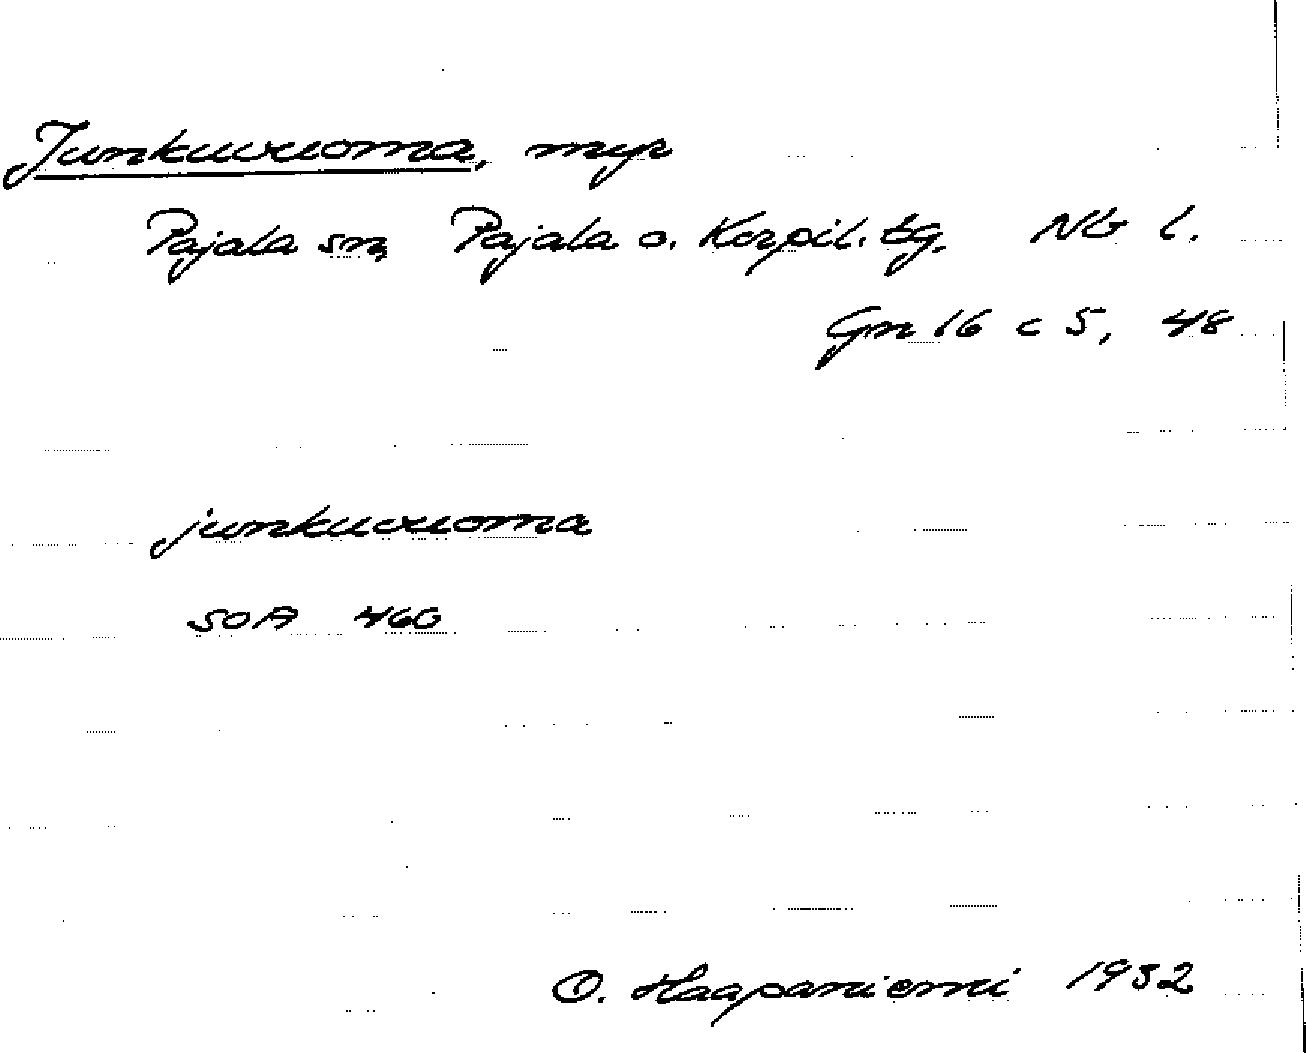 Junkuvuoma, myr
Pajala sn, Pajala o. Korpil. tg. Nb l.
Gn 16 c 5, 48
junkuvuoma
SOA 460
O. Haapaniemi 1932